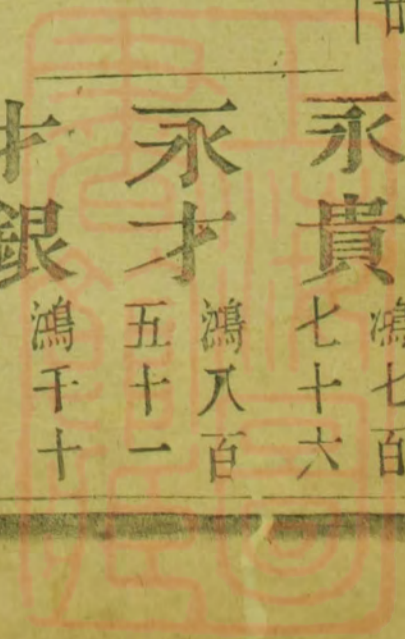 永貴
鴻七百
七十六
永才
鴻八百
五十一
才銀
鴻千十